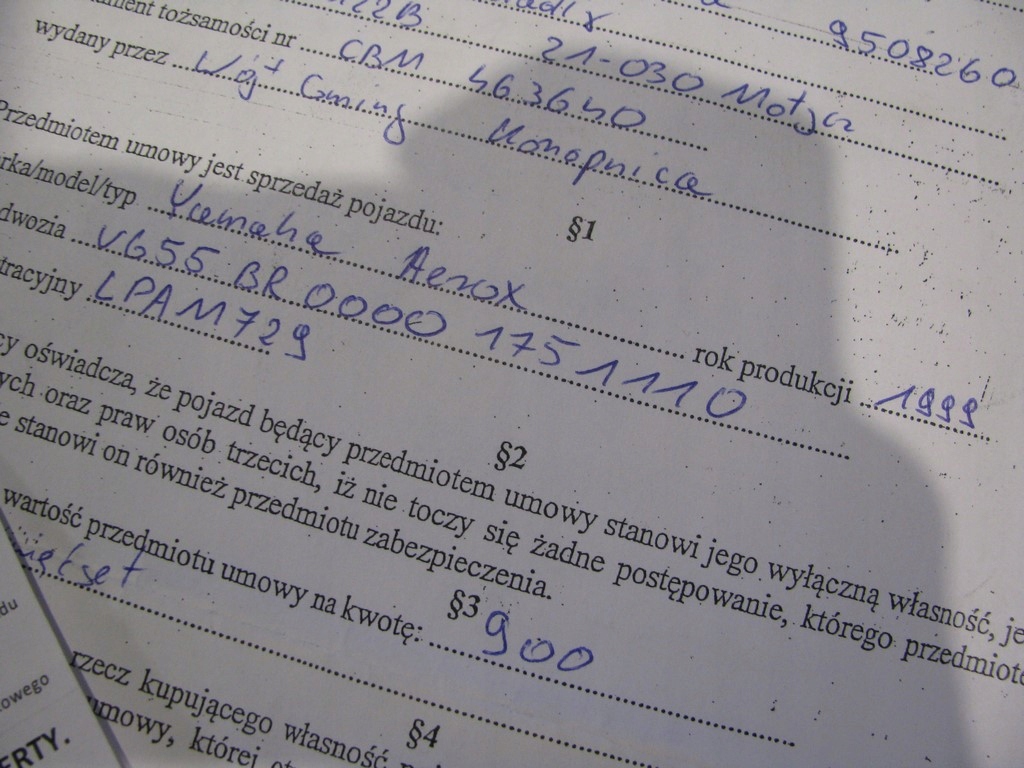 9508260
22B 21-030 Motycz
tożsamości nr CBM 463640
wydany przez Wójt Gminy Konopnica
§1
Przedmiotem umowy jest sprzedaż pojazdu:
rka/model/typ Yamaha Aerox rok produkcji 1999
dwozia VG55 BR 0000 1751110
tracyjny LPAM729
§2
cy oświadcza, że pojazd będący przedmiotem umowy stanowi jego wyłączną własność, je
ych oraz praw osób trzecich, iż nie toczy się żadne postępowanie, którego przedmiote
e stanowi on również przedmiotu zabezpieczenia.
§3
wartość przedmiotu umowy na kwotę: 900
więćset
§4
rzecz kupującego własność
umowy, której
du
owego
ERTY.